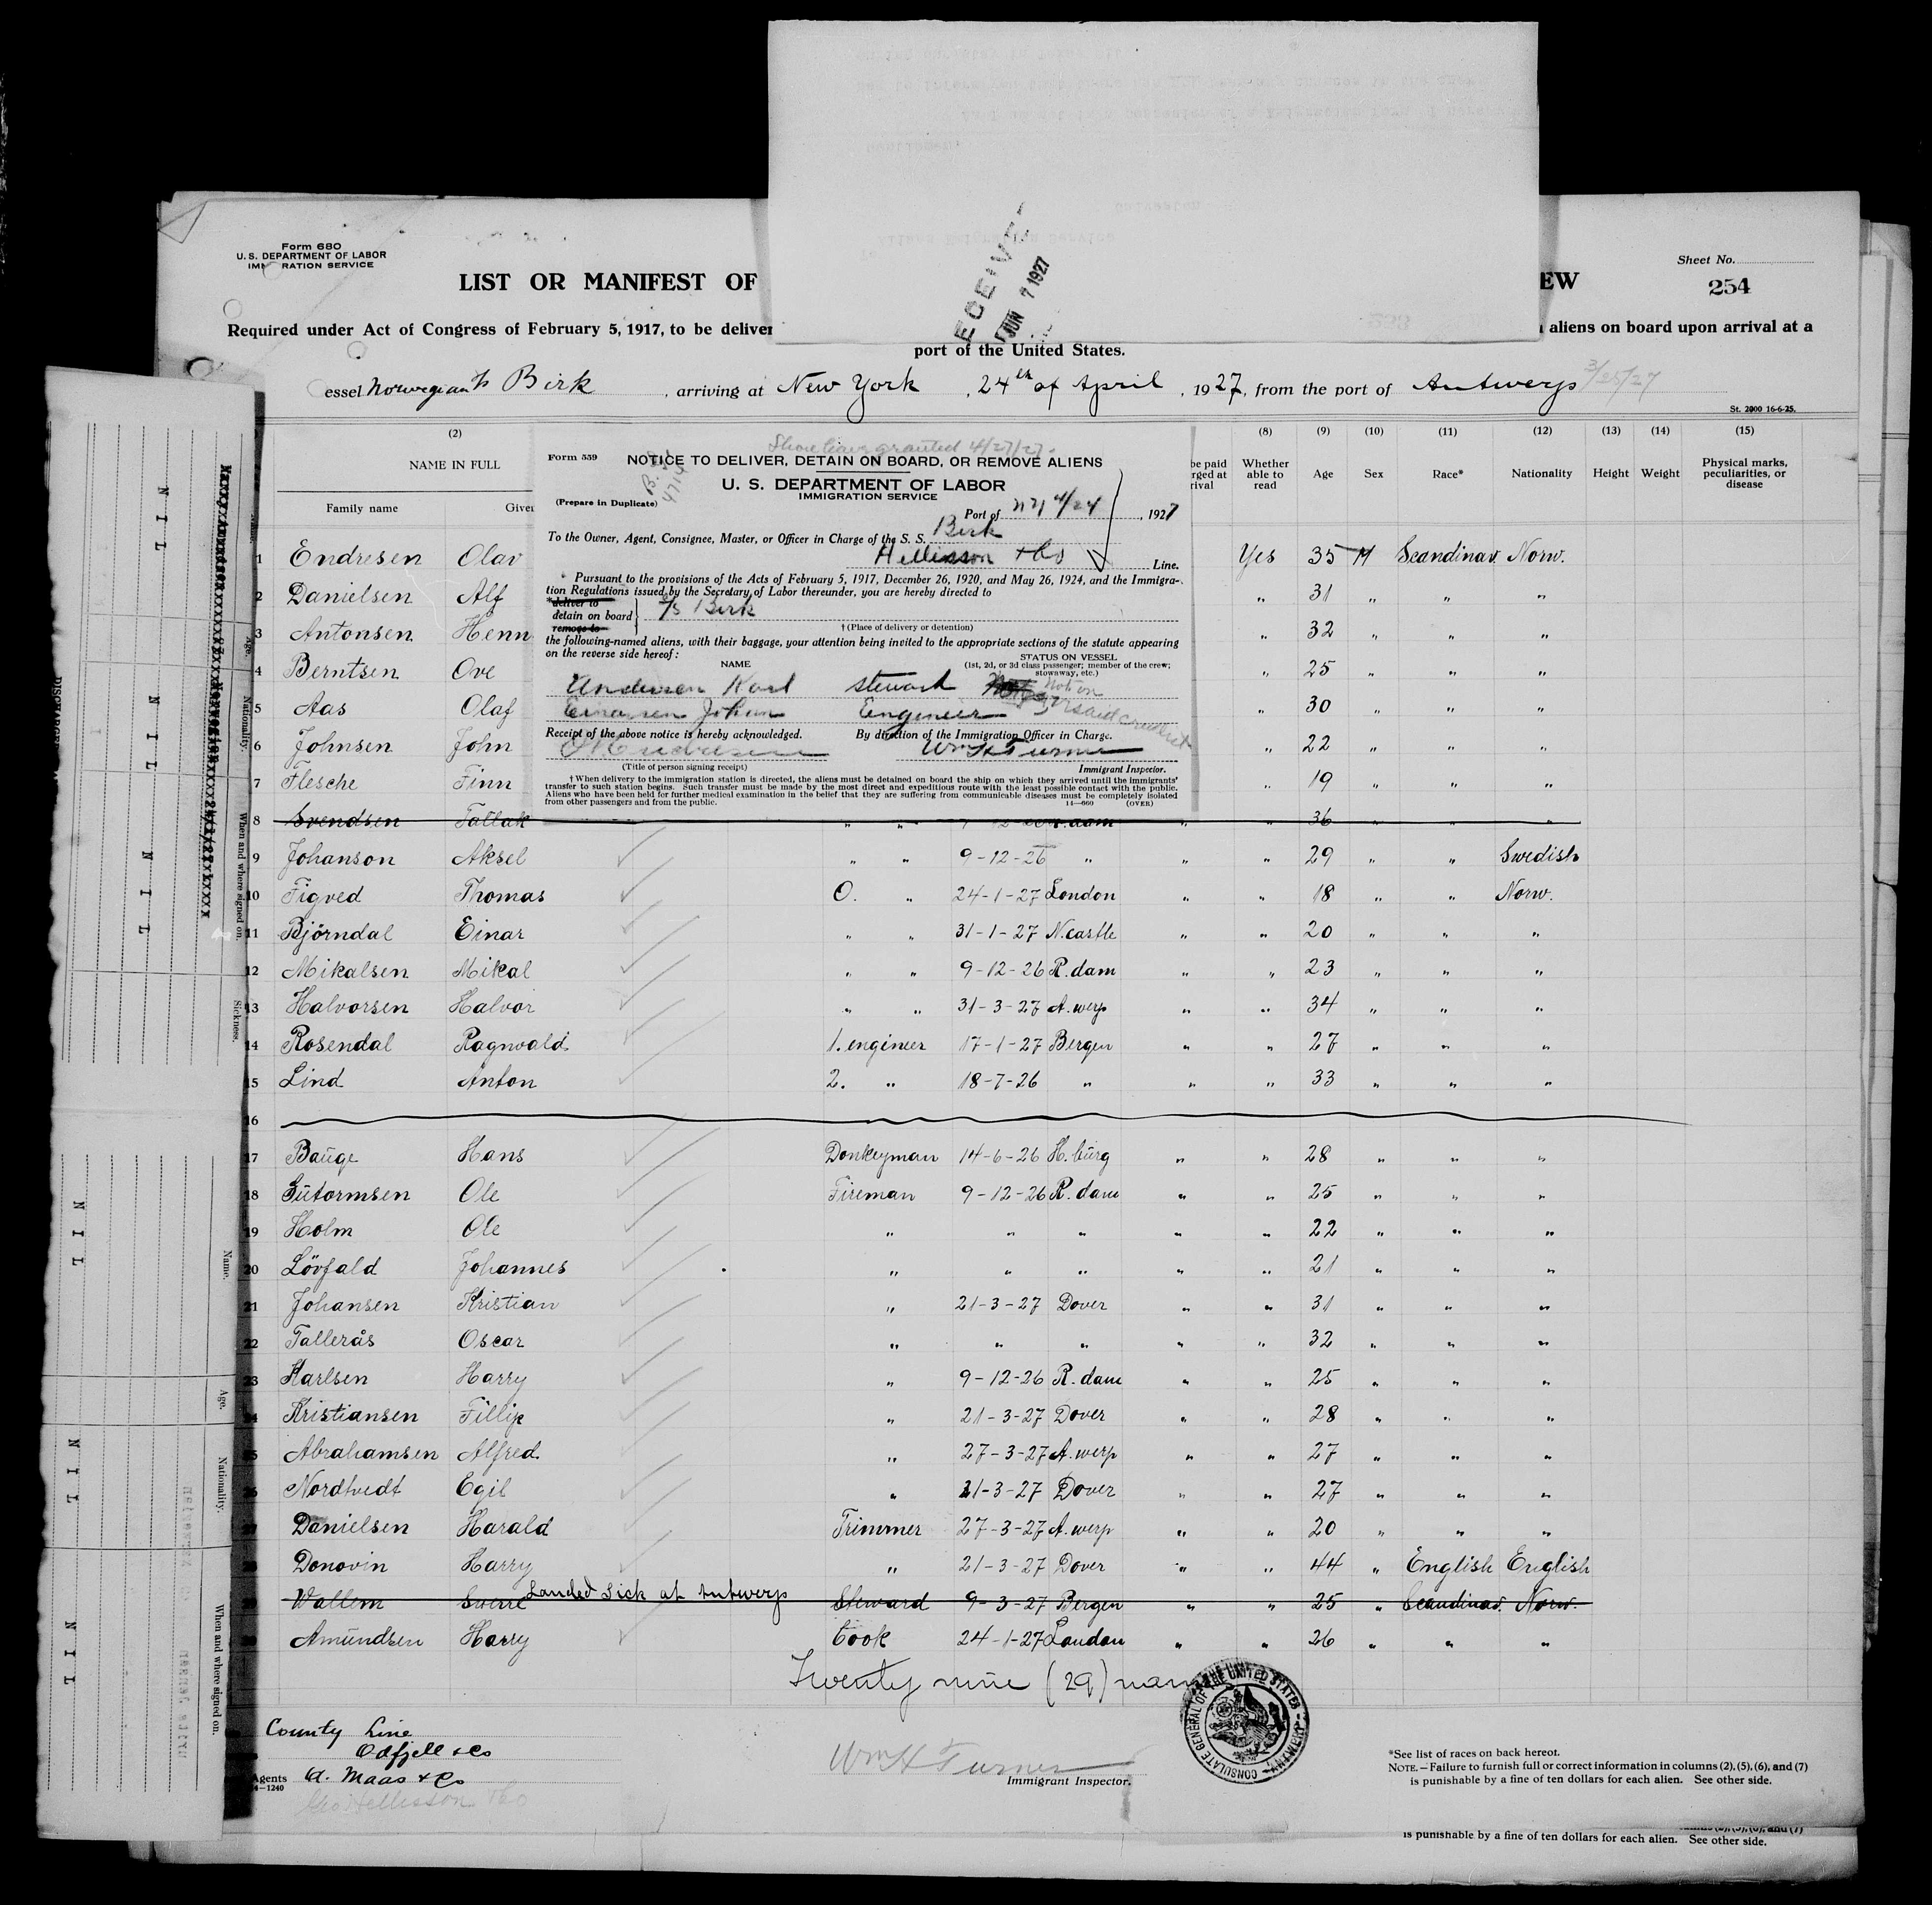 Form 680
U. S. DEPARTMENT OF LABOR
IMMIGRATION SERVICE
LIST OR MANIFEST OF
EW
Sheet No.
254
Required under Act of Congress of February 5, 1917, to be deliver
aliens on board upon arrival at a
port of the United States.
JUN 7 1927
essel Norwegian S/s Birk, arriving at New York, 24th of April, 1927, from the port of Antwerp 3/25/27
St. 2000 16-6-25.
(2) (8) (9) (10) (11) (12) (13) (14) (15)
NAME IN FULL
Family name Given
be paid
rged at
rival
Whether able to read Age Sex Race* Nationality Height Weight Physical marks, peculiarities, or disease
Shore leave granted 4/27/27.
Form 559 NOTICE TO DELIVER, DETAIN ON BOARD, OR REMOVE ALIENS
U. S. DEPARTMENT OF LABOR
IMMIGRATION SERVICE
(Prepare in Duplicate)
Port of NY 4/24, 1927
To the Owner, Agent, Consignee, Master, or Officer in Charge of the S. S. Birk
Hellisson & Co Line.
Pursuant to the provisions of the Acts of February 5, 1917, December 26, 1920, and May 26, 1924, and the Immigra-
tion Regulations issued by the Secretary of Labor thereunder, you are hereby directed to
*deliver to
detain on board S/s Birk
remove to
†(Place of delivery or detention)
the following-named aliens, with their baggage, your attention being invited to the appropriate sections of the statute appearing
on the reverse side hereof:
NAME
STATUS ON VESSEL
(1st, 2d, or 3d class passenger; member of the crew; stowaway, etc.)
Andersen Karl Steward Not on
Johan Engineer
Receipt of the above notice is hereby acknowledged. By direction of the Immigration Officer in Charge.
Wm H Turner
(Title of person signing receipt) Immigrant Inspector.
†When delivery to the immigration station is directed, the aliens must be detained on board the ship on which they arrived until the immigrants'
transfer to such station begins. Such transfer must be made by the most direct and expeditious route with the least possible contact with the public.
Aliens who have been held for further medical examination in the belief that they are suffering from communicable diseases must be completely isolated
from other passengers and from the public. 14—660 (OVER)
1 Endresen Olav Yes 35 M Scandinav. Norw.
2 Danielsen Alf " 31 " " "
3 Antonsen Henn " 32 " " "
4 Berntsen Ove " 25 " " "
5 Aas Olaf " 30 " " "
6 Johnsen John " 22 " " "
7 Flesche Finn " 19 " " "
8 Svendsen Tallak " " R.dam " " 36 " " "
9 Johanson Aksel " " 9-12-26 " " " 29 " " Swedish
10 Figved Thomas O. " 24-1-27 London " " 18 " " Norw.
11 Björndal Einar " " 31-1-27 N.castle " " 20 " " "
12 Mikalsen Mikal " " 9-12-26 R.dam " " 23 " " "
13 Halvorsen Halvor " " 31-3-27 A.werp " " 34 " " "
14 Rosendal Ragnvald 1. engineer 17-1-27 Bergen " " 27 " " "
15 Lind Anton 2. " 18-7-26 " " " 33 " " "
16
17 Bauge Hans Donkeyman 14-6-26 H.burg " " 28 " " "
18 Gutormsen Ole Fireman 9-12-26 R.dam " " 25 " " "
19 Holm Ole " " " " " 22 " " "
20 Lövfald Johannes " " " " " 21 " " "
21 Johansen Kristian " 21-3-27 Dover " " 31 " " "
22 Tallerås Oscar " " " " " 32 " " "
23 Karlsen Harry " 9-12-26 R.dam " " 25 " " "
24 Kristiansen Fillip " 21-3-27 Dover " " 28 " " "
25 Abrahamsen Alfred " 27-3-27 A.werp " " 27 " " "
26 Nordtvedt Egil " 21-3-27 Dover " " 27 " " "
27 Danielsen Harald Trimmer 27-3-27 A.werp " " 20 " " "
28 Donovin Harry " 21-3-27 Dover " " 44 " English English
29 Wallem Sverre Landed sick at Antwerp Steward 9-3-27 Bergen " " 25 " Scandinav. Norw.
30 Amundsen Harry Cook 24-1-27 London " " 26 " " "
Twenty nine (29) nam
CONSULATE GENERAL OF THE UNITED STATES
County Line
Odfjell & Co
Agents A. Maas & Co
14—1240
Geo Hellisson & Co
Wm H Turner
Immigrant Inspector.
*See list of races on back hereof.
NOTE.—Failure to furnish full or correct information in columns (2), (5), (6), and (7)
is punishable by a fine of ten dollars for each alien. See other side.
is punishable by a fine of ten dollars for each alien. See other side.
Age. Nationality. When and where signed on. Sickness.
Name. Age. Nationality. When and where signed on.
NIL NIL NIL
NIL NIL NIL